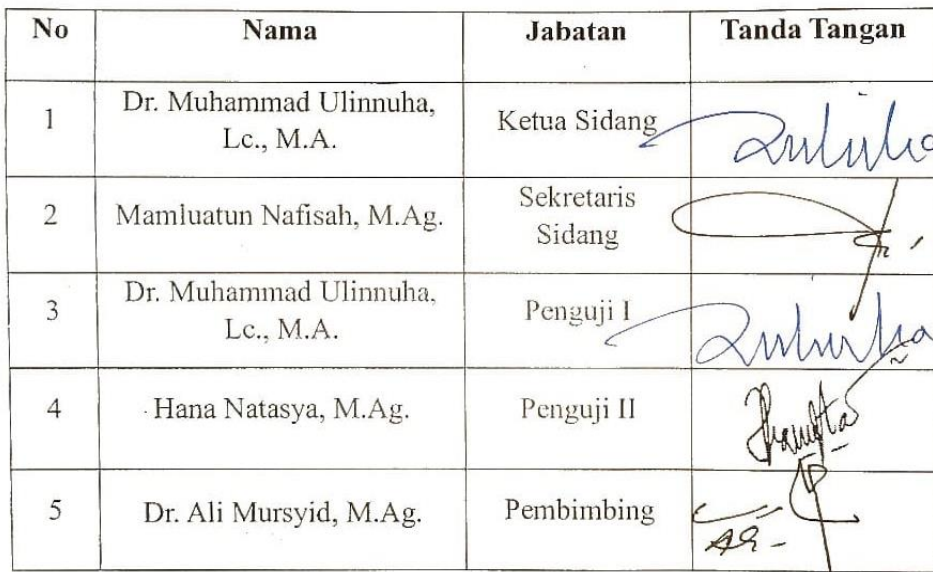 No Nama Jabatan Tanda Tangan
1 Dr. Muhammad Ulinnuha, Lc., M.A. Ketua Sidang
2 Mamluatun Nafisah, M.Ag. Sekretaris Sidang
3 Dr. Muhammad Ulinnuha, Lc., M.A. Penguji I
4 Hana Natasya, M.Ag. Penguji II
5 Dr. Ali Mursyid, M.Ag. Pembimbing